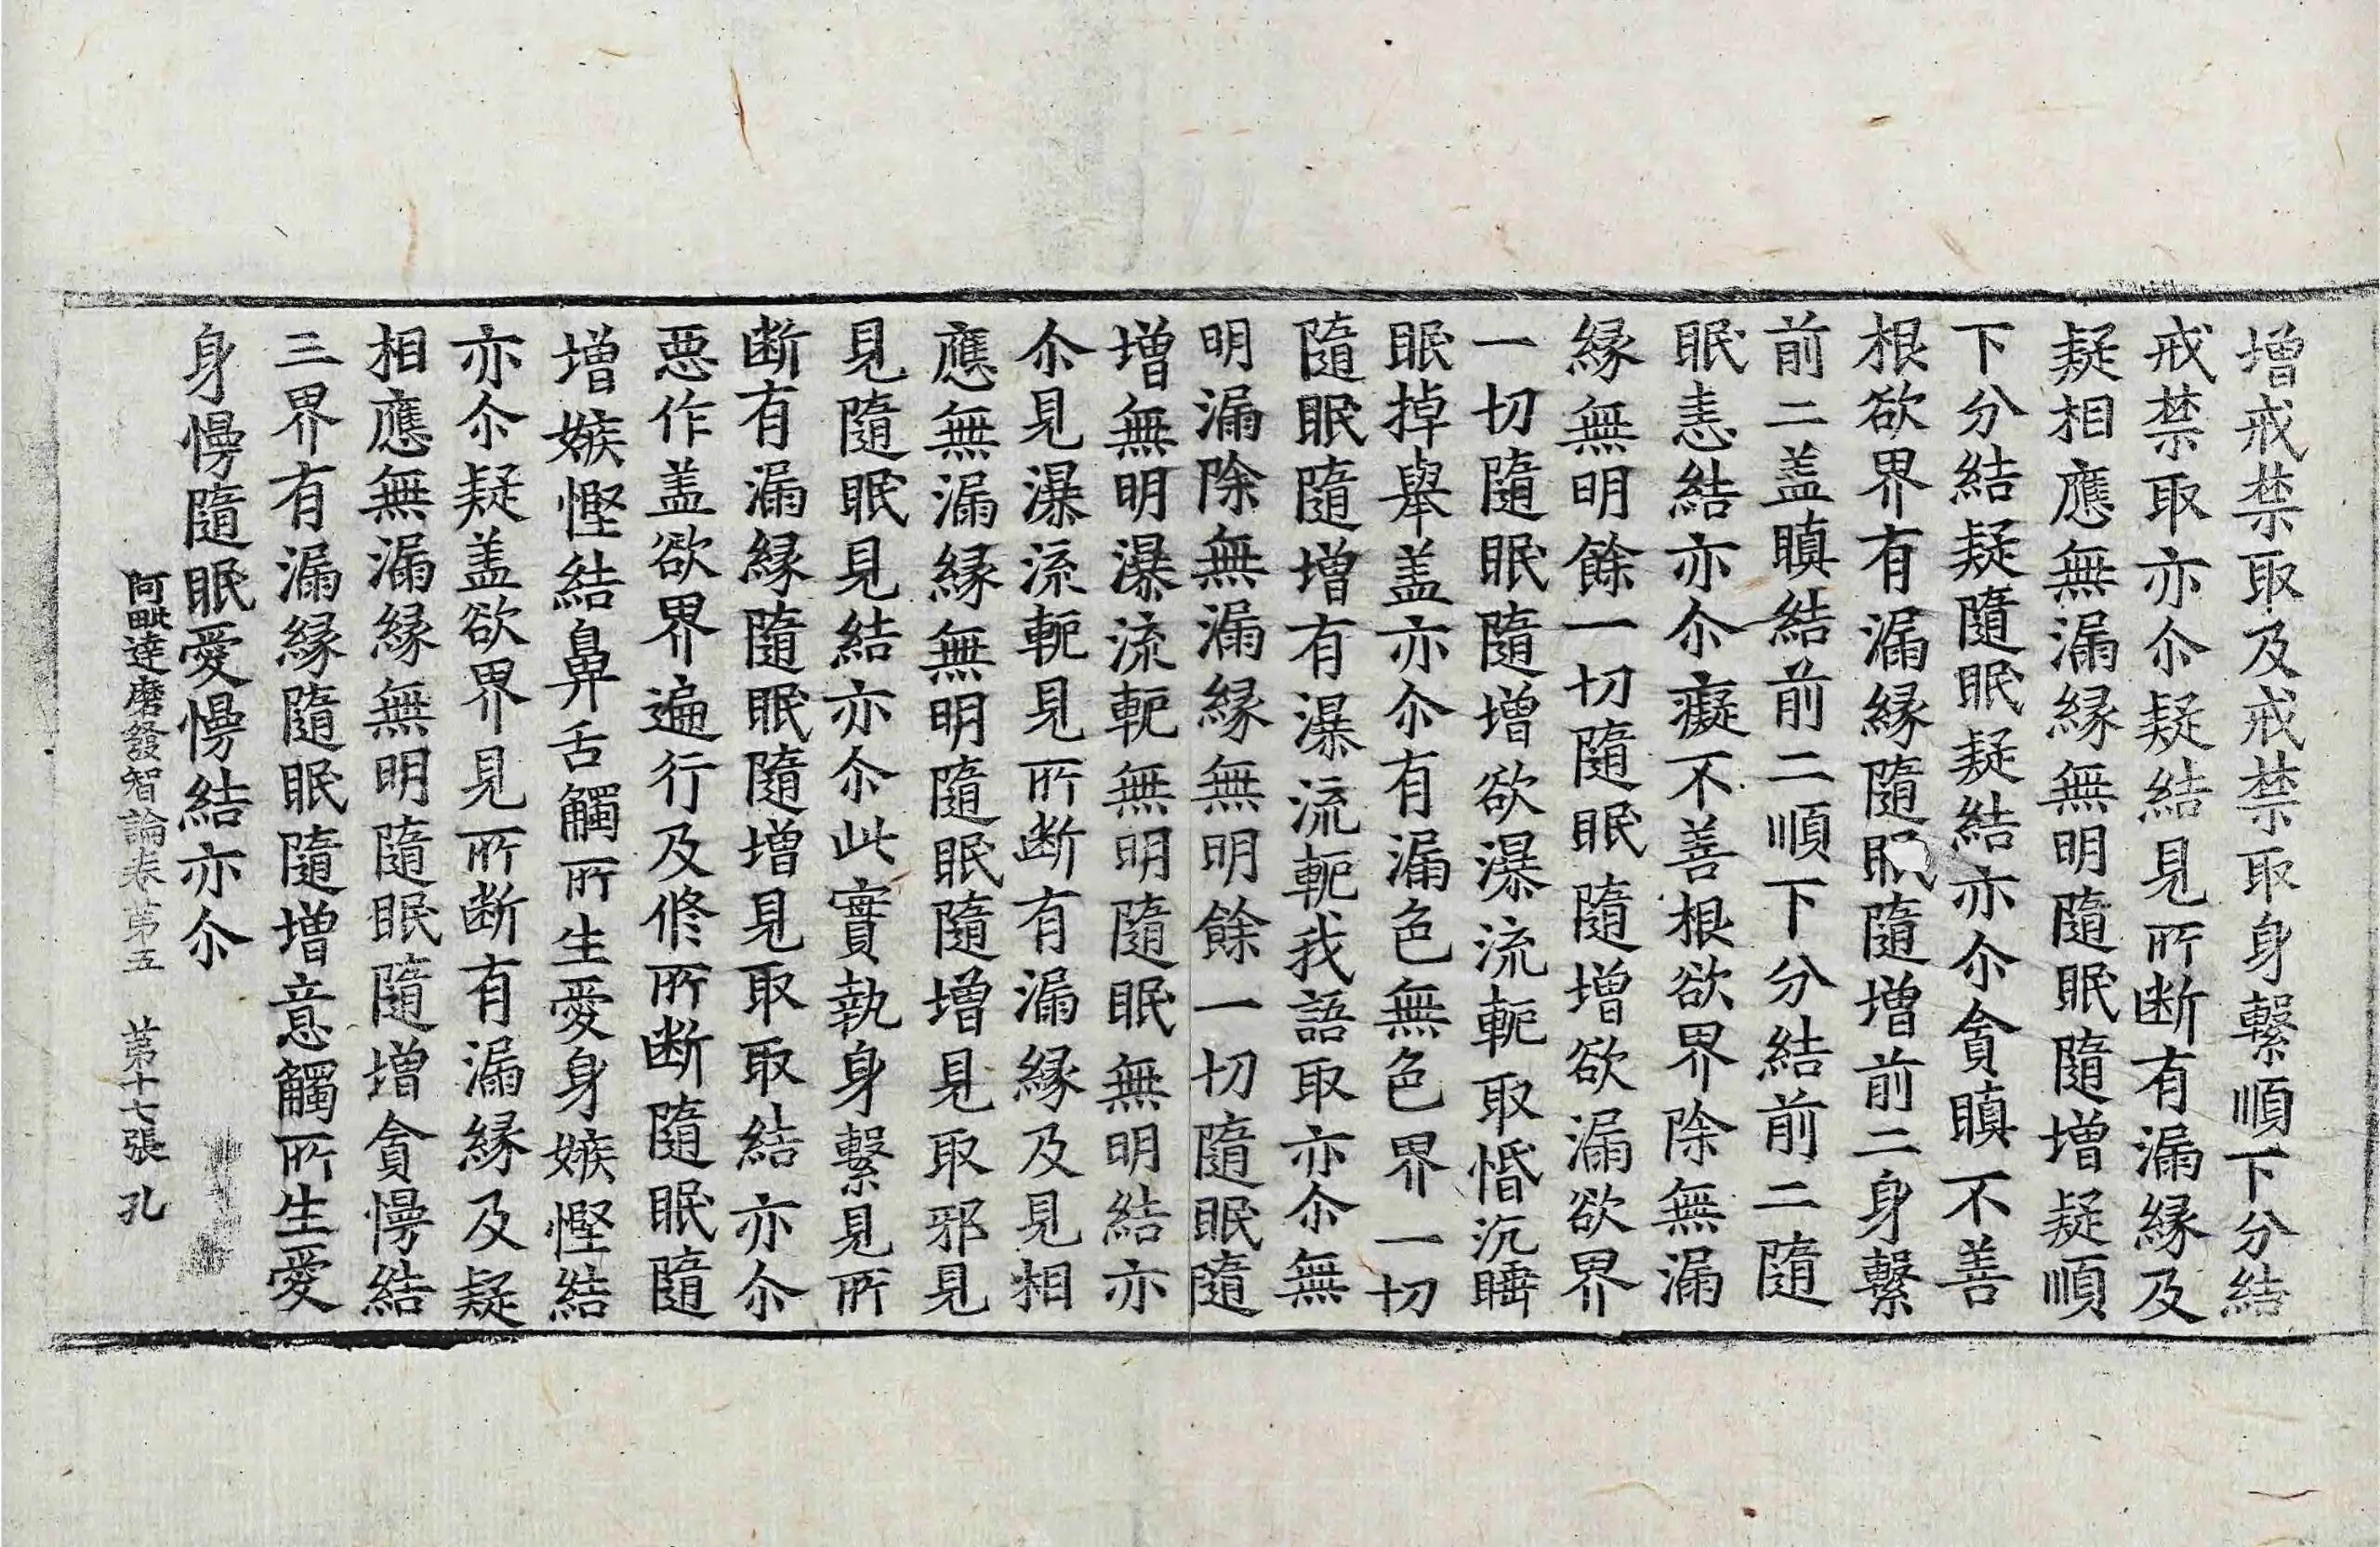 增戒禁取及戒禁取身繫順下分結
戒禁取亦尒疑結見所断有漏縁及
疑相應無漏縁無明隨眠隨增疑順
下分結疑隨眠疑結亦尒貪瞋不善
根欲界有漏縁隨眠隨增前二身繫
前二盖瞋結前二順下分結前二隨
眠恚結亦尒癡不善根欲界除無漏
縁無明餘一切隨眠隨增欲漏欲界
一切隨眠隨增欲瀑流軛取惛沉睡
眠掉舉盖亦尒有漏色無色界一切
隨眠隨增有瀑流軛我語取亦尒無
明漏除無漏縁無明餘一切隨眠隨
增無明瀑流軛無明隨眠無明結亦
尒見瀑流軛見所断有漏縁及見相
應無漏縁無明隨眠隨增見取邪見
見隨眠見結亦尒此實執身繫見所
断有漏縁隨眠隨增見取取結亦尒
惡作盖欲界遍行及修所断隨眠隨
增嫉慳結鼻舌觸所生愛身嫉慳結
亦尒疑盖欲界見所断有漏縁及疑
相應無漏縁無明隨眠隨增貪慢結
三界有漏縁隨眠隨增意觸所生愛
身慢隨眠愛慢結亦尒
阿毗達磨發智論卷第五 第十七張 孔